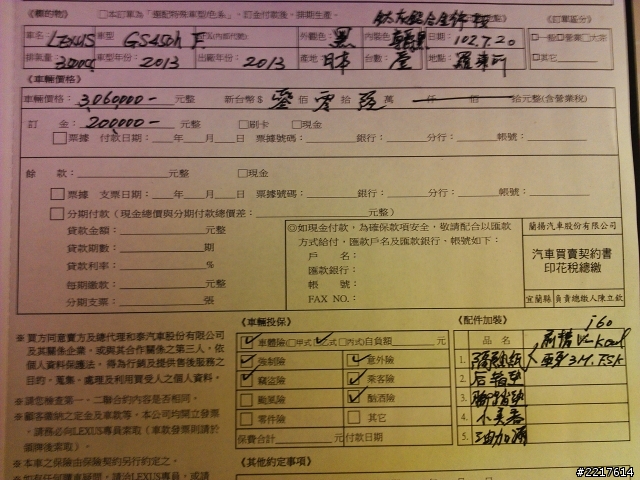 《標的物》 □本訂單為「選配特殊車型色系」,訂金付款後,排期生產。 《訂單區分》
車名: LEXUS 車型 GS450h F 外觀色: 黑 內裝色 日期: 102.7.20 □一般□營業□大宗
排氣量 車型年份: 2013 出廠年份: 2013 產地 日本 台數: 壹 地點: 羅東所 □其它
《車輛價格》
車輛價格: 3,060,000- 元整 新台幣$ 佰 零 拾 萬 仟 佰 拾元整(含營業稅)
訂 金: 200,000- 元整 □刷卡 □現金
□票據 付款日期: 年 月 日 票據號碼: 銀行: 分行: 帳號:
餘 款: 元整 □現金
□票據 支票日期: 年 月 日 票據號碼: 銀行: 分行: 帳號:
□分期付款(現金總價與分期付款總價差: 元整)
貸款金額: 元整
貸款期數: 期
貸款利率: %
每期繳款: 元整
分期支票: 張
◎如現金付款,為確保款項安全,敬請配合以匯款
方式給付,匯款戶名及匯款銀行、帳號如下:
戶 名:
匯款銀行:
帳 號:
FAX NO.:
蘭揚汽車股份有限公司
汽車買賣契約書
印花稅總繳
宜蘭縣 負責總繳人陳立欽
※買方同意賣方及總代理和泰汽車股份有限公司
及其關係企業,或與其合作關係之第三人,依
個人資料保護法,得為行銷及提供售後服務之
目的,蒐集、處理及利用買受人之個人資料。
※請您檢查第一、二聯合約內容是否相同。
※顧客繳付之定金及車款等,本公司均開立發票
,請務必向LEXUS專員索取(車款發票則請於
領牌後索取)。
※本車之保險由保險契約另行約定之。
《車輛投保》
☑車體險(□甲式☑乙式□丙式)自負額 元
☑強制險 ☑意外險
☑竊盜險 ☑乘客險
□颱風險 ☑酗酒險
□零件險 □其它
保費合計 元 付款日期
《其他約定事項》
《配件加裝》
品 名
j60
前擋 V-kool
1. 隔熱紙 車身3M.FSK
2. 后箱墊
3. 腳踏墊
4. 小美容
5. 油加滿
#2217614